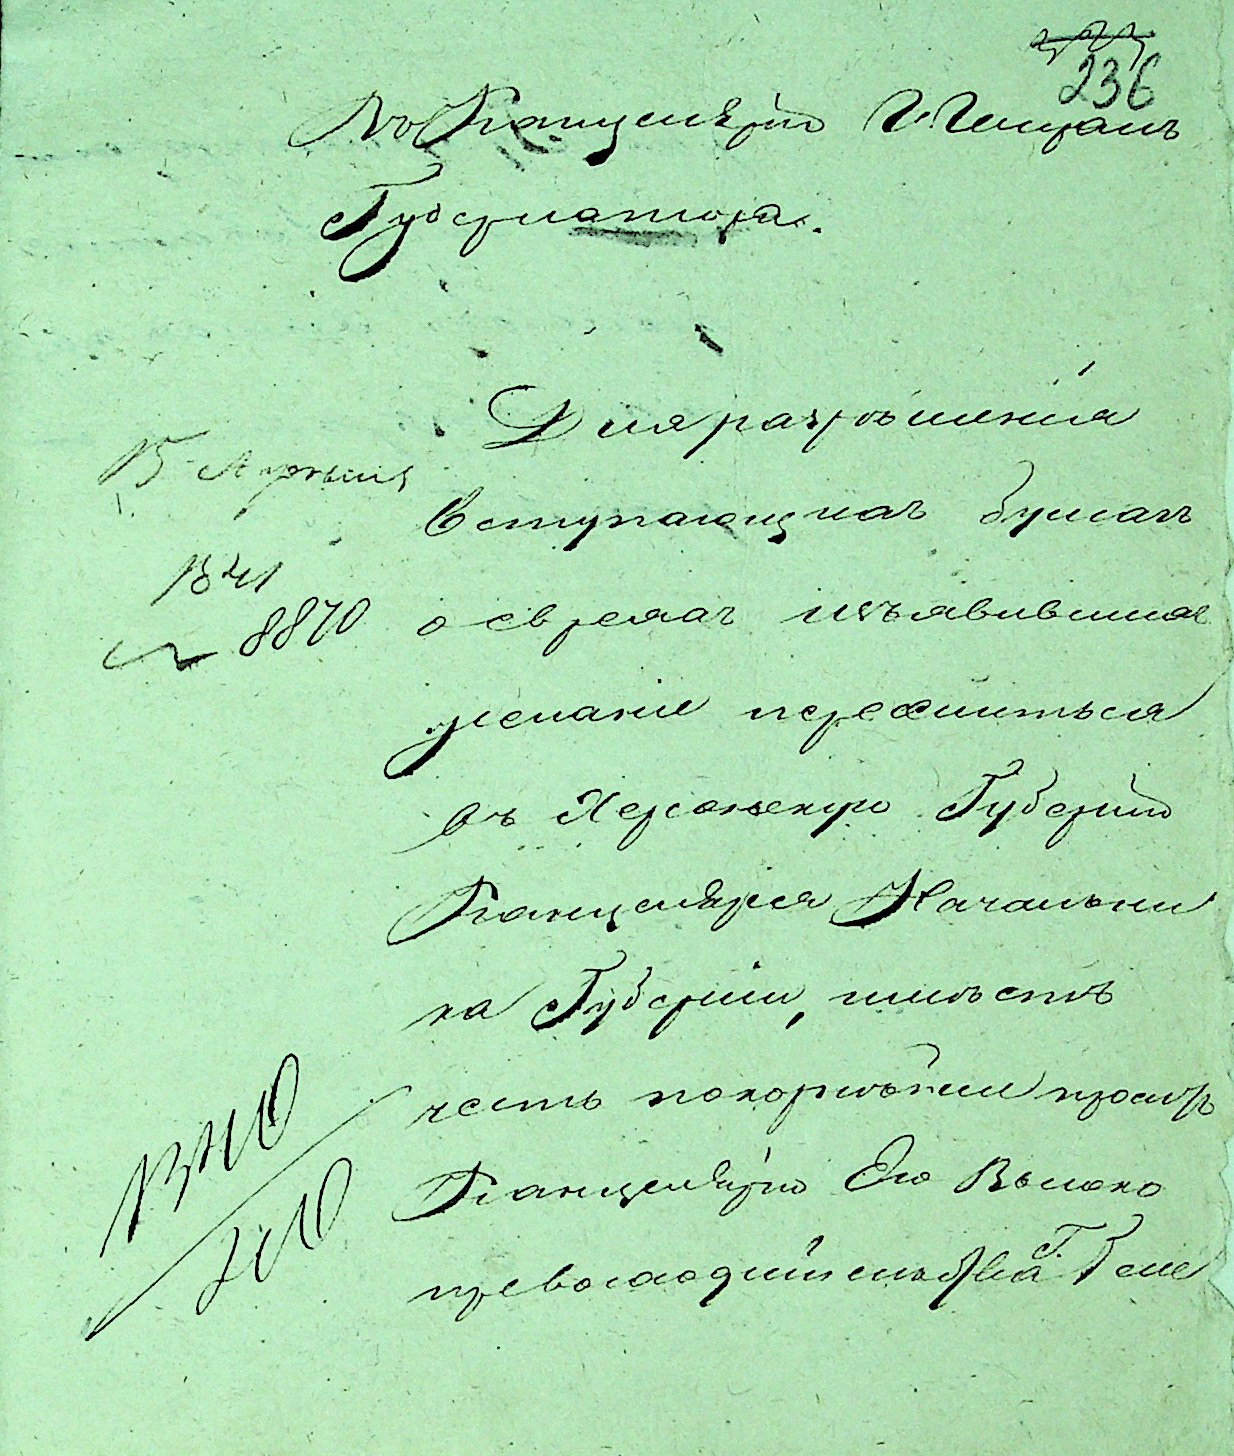 236
Въ Канцелярію Г. Гражданск.
Губернатора.
Для разрѣшенія
15 Апрѣля
вступающихъ бумагъ
1841
о евреяхъ изъявившихъ
№ 8870
желаніе переселиться
въ Херсонскую Губернію
Канцелярія Начальни
ка Губерніи, имѣетъ
честь покорнѣйше просить
Канцелярію Его Высоко
превосходительства Г. Гене